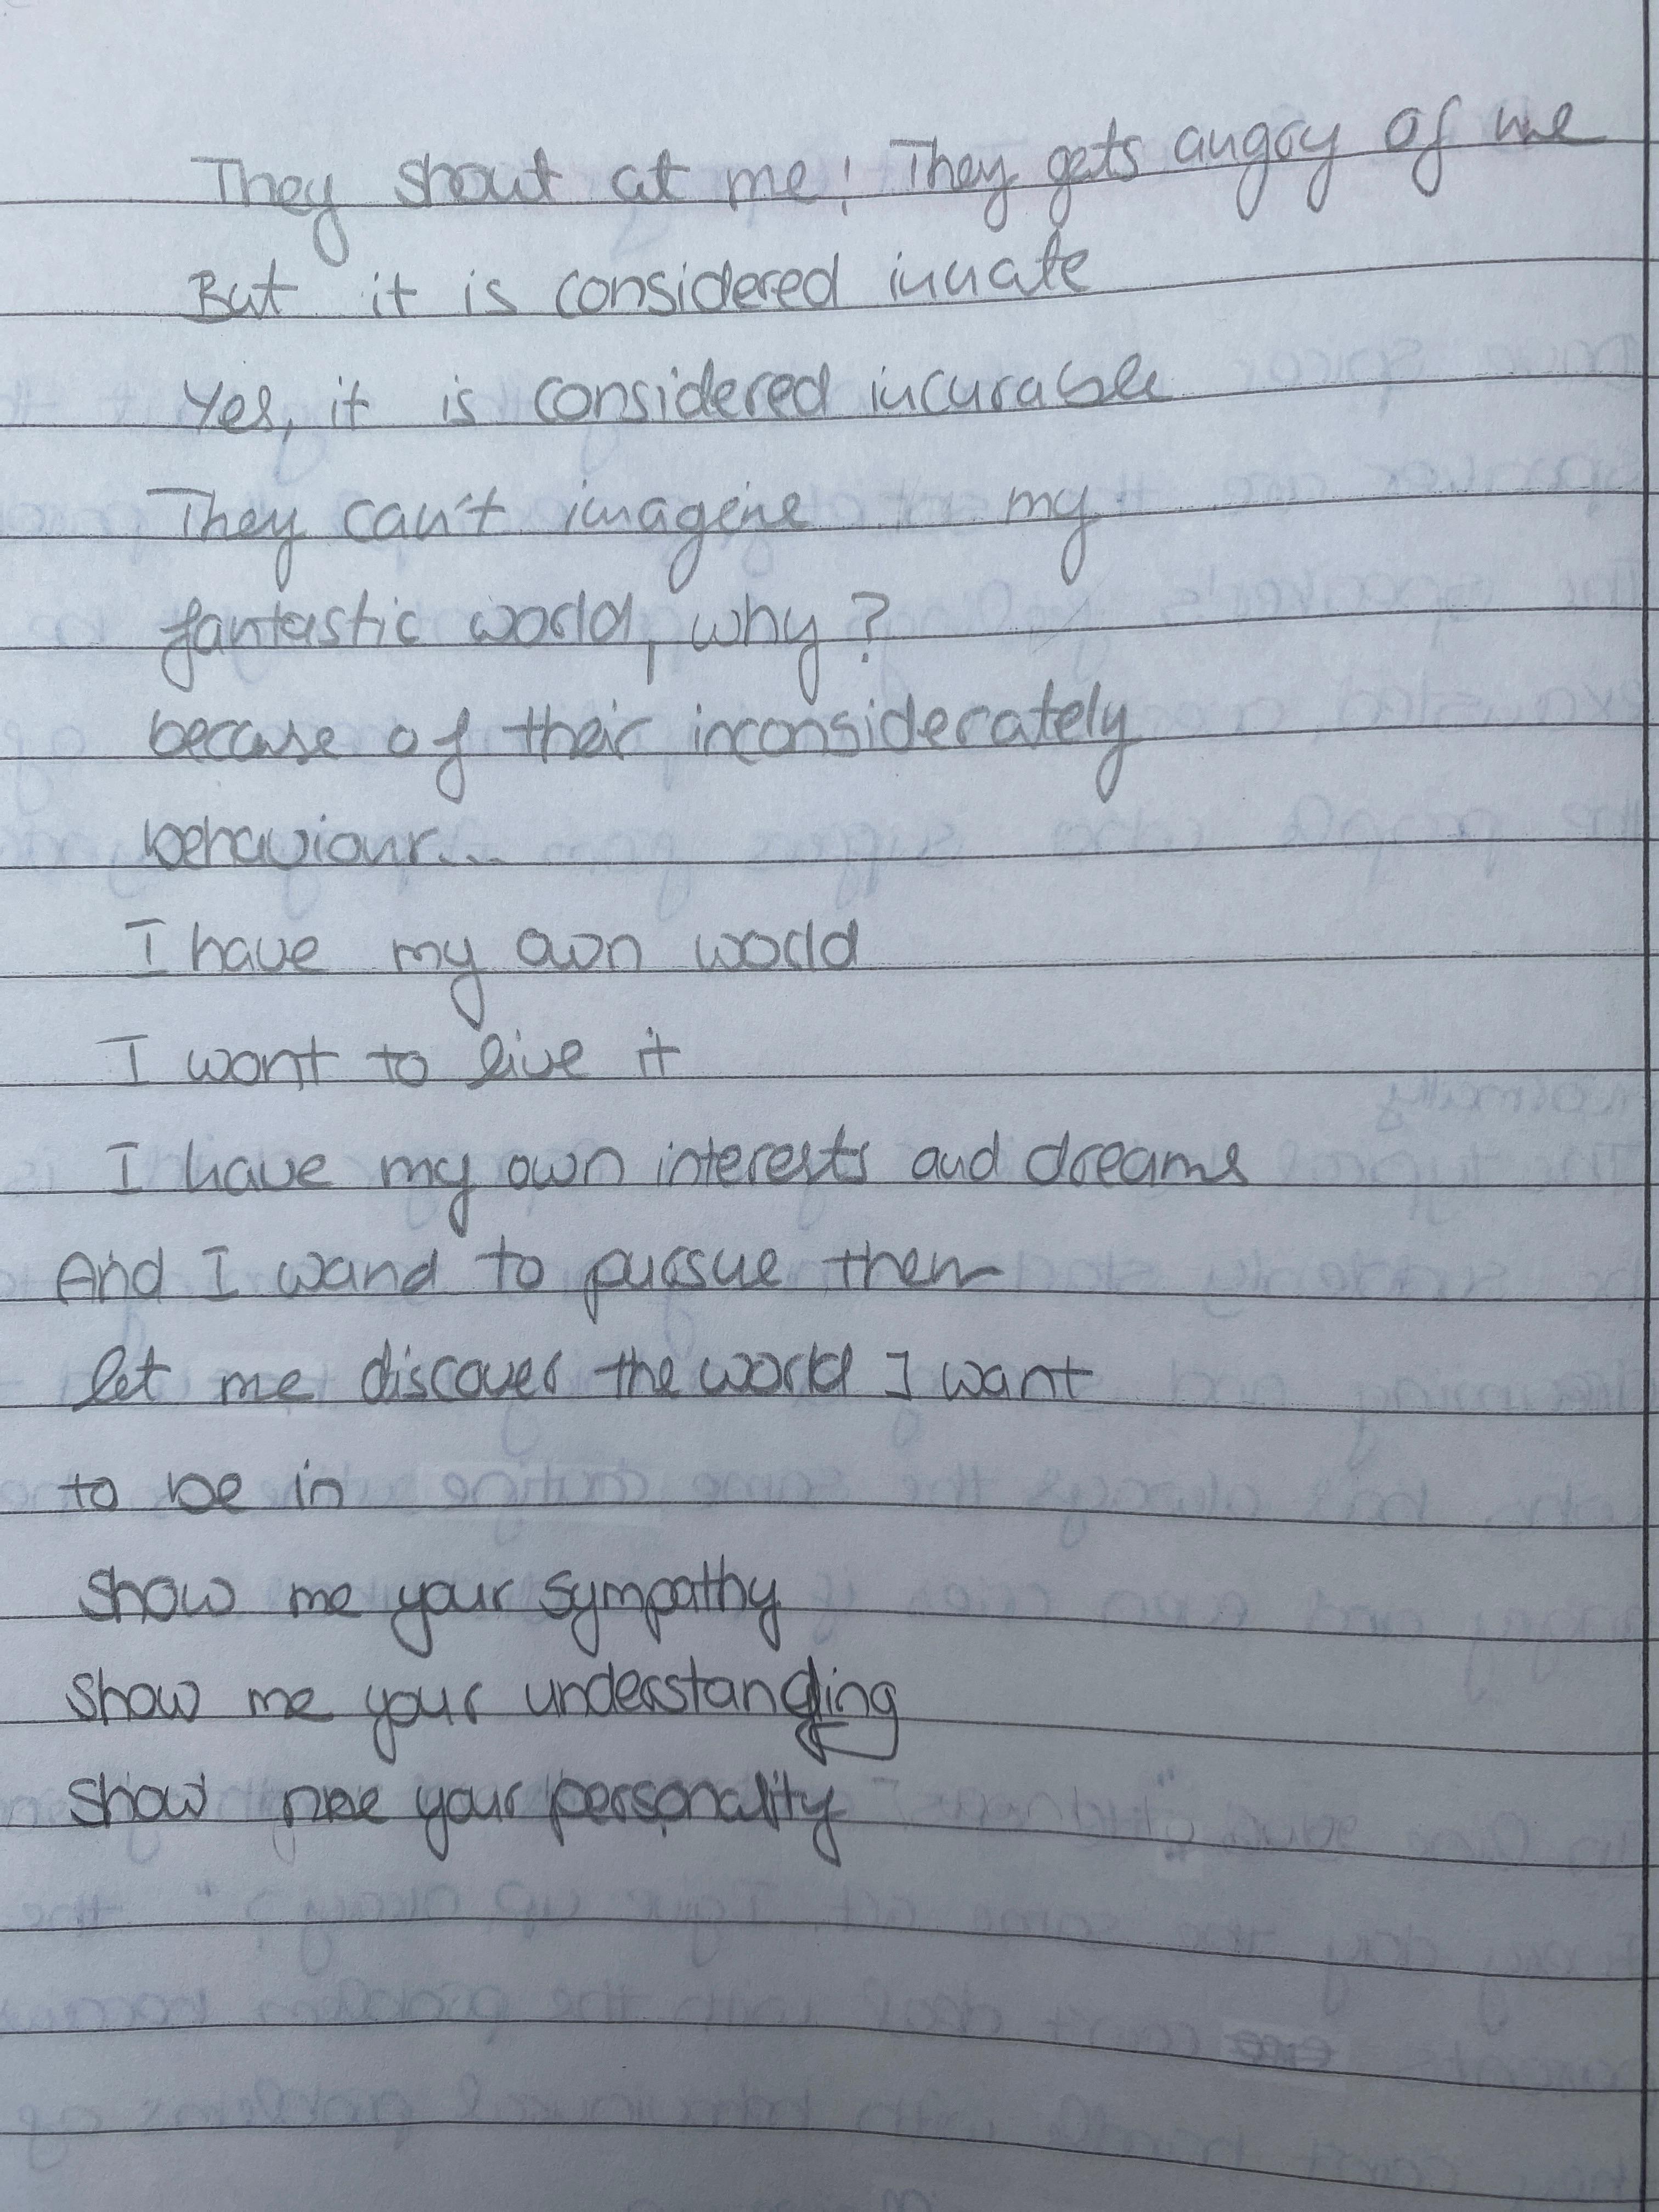 They shout at me! They gets angry of me
But it is considered innate
Yes, it is considered incurable
They can't imagine my
fantastic world, why?
because of their inconsiderately
behaviour...
I have my own world
I want to live it
I have my own interests and dreams
And I wand to pursue them
let me discover the world I want
to be in
Show me your sympathy
Show me your understanding
Show me your personality